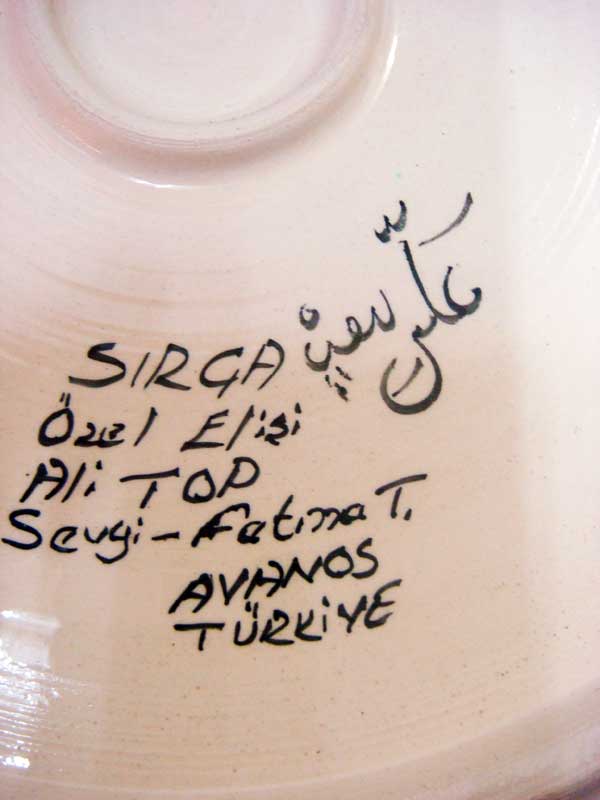 SIRÇA
Özel Elişi
Ali TOP
Sevgi-Fatma T.
AVANOS
TÜRKİYE